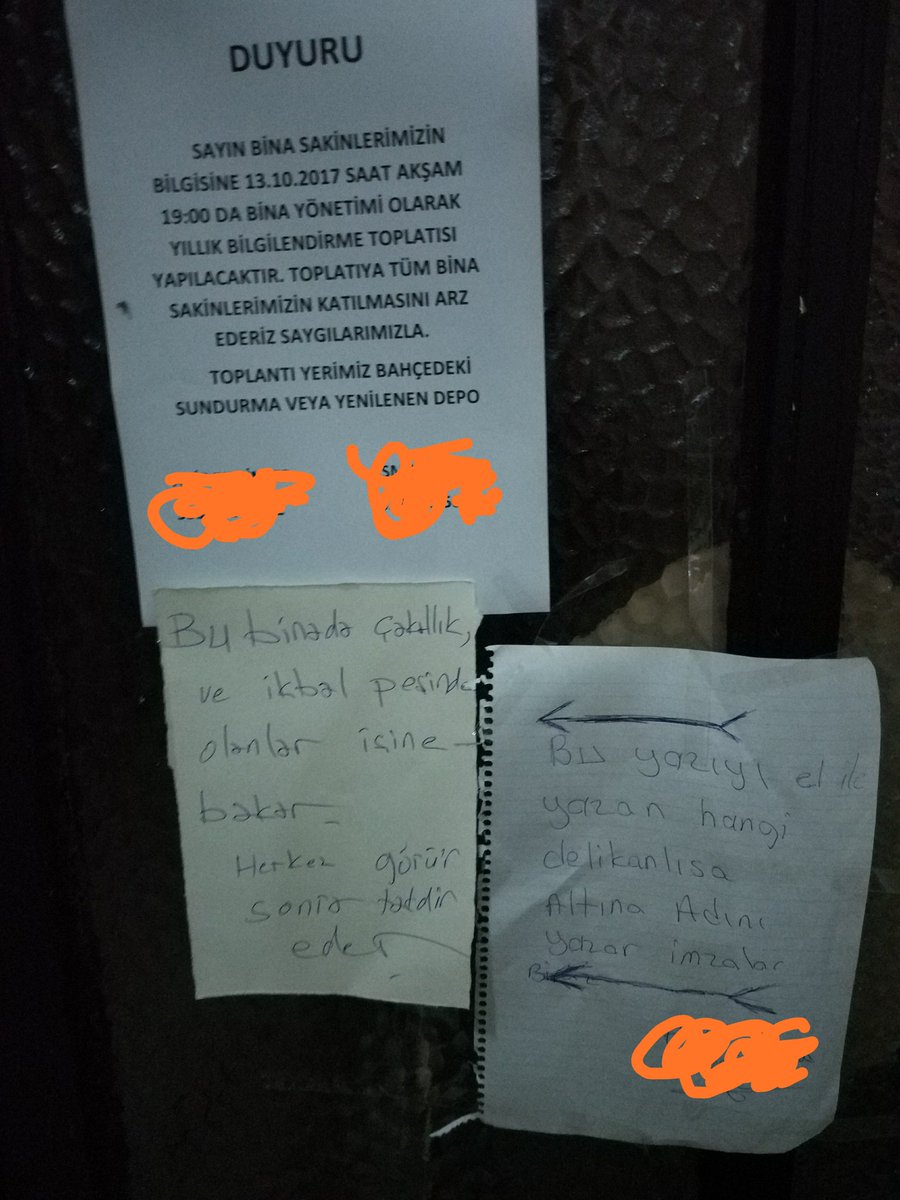 DUYURU
SAYIN BİNA SAKİNLERİMİZİN
BİLGİSİNE 13.10.2017 SAAT AKŞAM
19:00 DA BİNA YÖNETİMİ OLARAK
YILLIK BİLGİLENDİRME TOPLATISI
YAPILACAKTIR. TOPLATIYA TÜM BİNA
SAKİNLERİMİZİN KATILMASINI ARZ
EDERİZ SAYGILARIMIZLA.
TOPLANTI YERİMİZ BAHÇEDEKİ
SUNDURMA VEYA YENİLENEN DEPO
Bu binada Çakallık,
ve ikbal peşinde
olanlar işine
bakar
Herkez görür
sonra
eder
Bu yazıyı el ile
yazan hangi
delikanlısa
Altına Adını
yazar imzalar